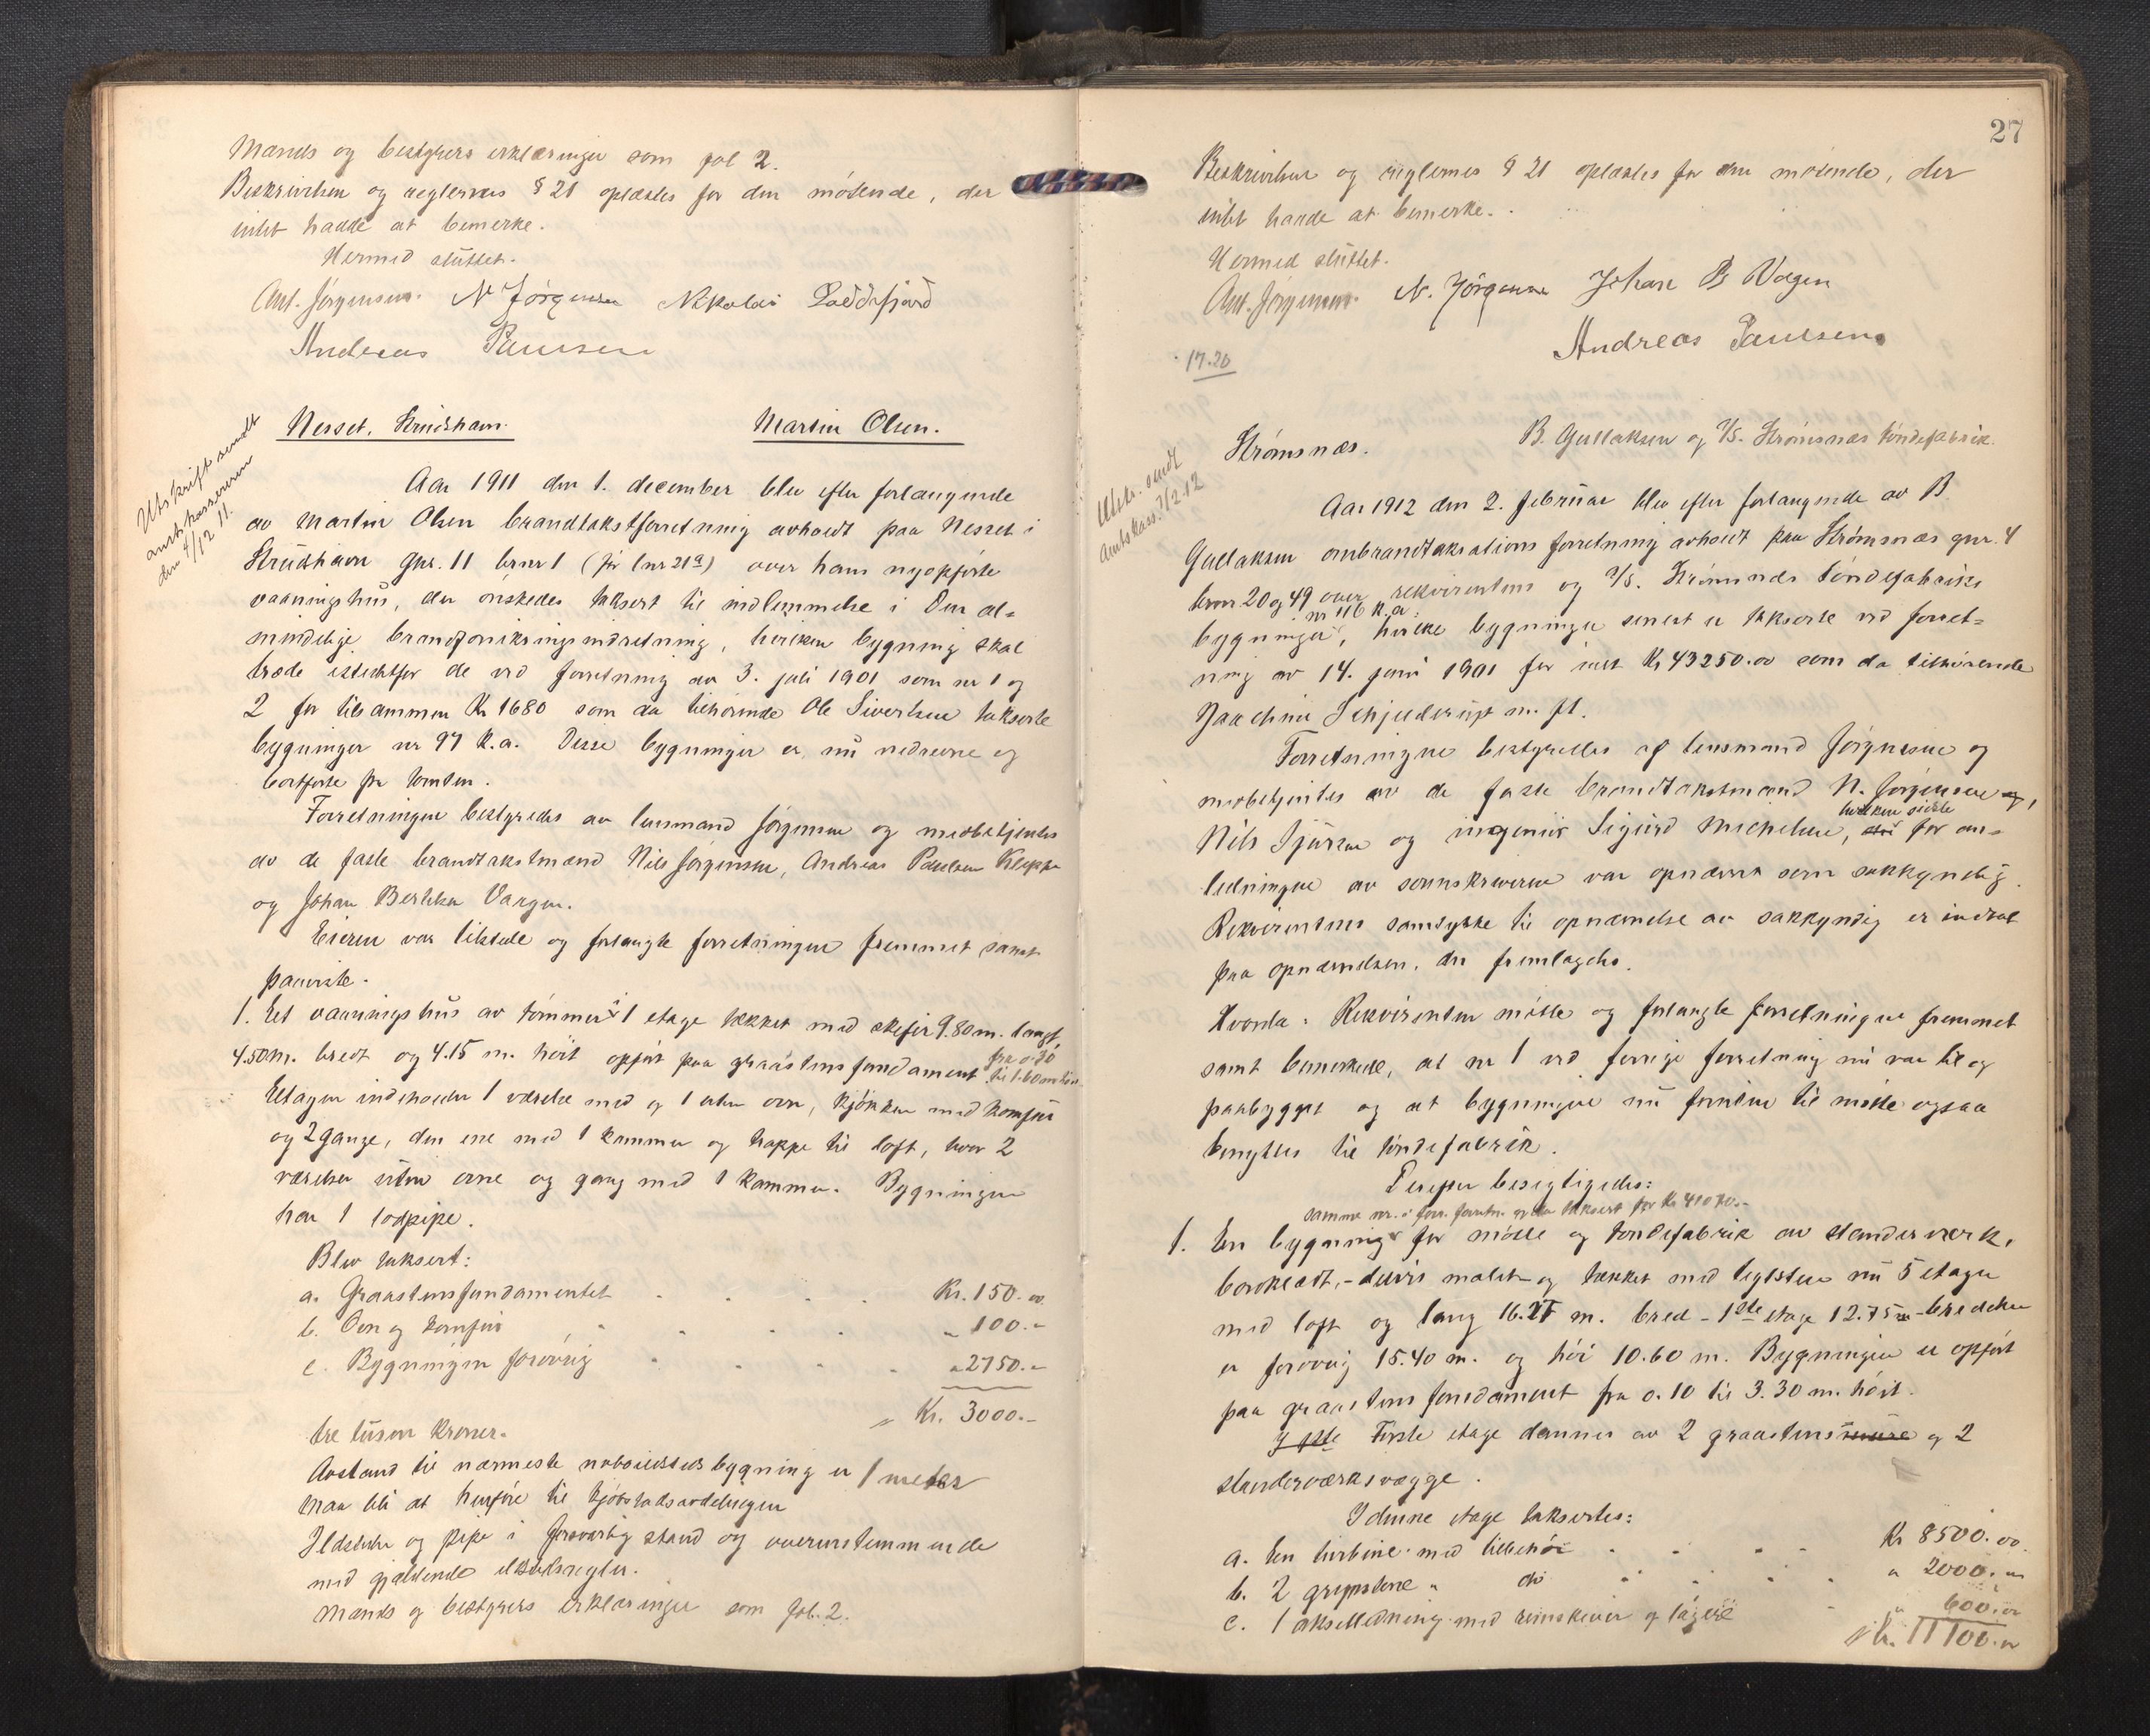 Mænds og bestyrers erklæringer som fol 2.
Beskrivelsen og reglernes § 21 oplæstes for den møtende, der
intet hadde at bemerke.
Hermed sluttet.
Ant. Jørgensen. N Jørgensen Nikolai Loddefjord
Andreas Paulsen
Utskrift sendt
amtskassereren
den 4/12 11.
Nesset, Strudshavn. Martin Olsen.
Aar 1911 den 1. december blev efter forlangende
av Martin Olsen brandtakstforretning avholdt paa Nesset i
Strudshavn gnr. 11 brnr 1 (før lnr 21a) over hans nyopførte
vaaningshus, der ønskedes taksert til indlemmelse i Den al-
mindelige brandforsikringsindretning, hvilken bygning skal
træde istedetfor de ved forretning av 3. juli 1901 som nr 1 og
2 for tilsammen Kr 1680 som da tilhørende Ole Sivertsen takserte
bygninger nr 97 k.a. Disse bygninger er nu nedrevne og
bortførte fra tomten.
Forretningen bestyredes av lensmand Jørgensen og medbetjentes
av de faste brandtakstmænd Nils Jørgensen, Andreas Paulsen Kleppe
og Johan Berthin Vaagen.
Eieren var tilstede og forlangte forretningen fremmet samt
paaviste.
1. Et vaaningshus av tømmer i 1 etage tækket med skifer 9.80 m. langt,
4.50 m. bredt og 4.15 m. høit opført paa graastensfundament fra 0.30
til 1.60 m høit
Etagen indeholder 1 værelse med og 1 uten ovn, kjøkken med komfur
og 2 gange, den ene med 1 kammer og trappe til loft, hvor 2
værelser uten ovne og gang med 1 kammer. Bygningen
har 1 lodpipe.
Blev taksert:
a. Graastensfundamentet Kr. 150.00
b. Ovn og komfur " 100.-
c. Bygningen forøvrig " 2750.-
Kr. 3000.-
tre tusen kroner.
Avstand til nærmeste naboeiersbygning er 1 meter
Maa bli at henføre til kjøbstadsavdelingen
Ildsteder og pipe i forsvarlig stand og overensstemmende
med gjældende ildstedsregler.
Mænds og bestyrers erklæringer som fol. 2.
27
Beskrivelsen og reglernes § 21 oplæstes for den møtende, der
intet hadde at bemerke.
Hermed sluttet.
Ant. Jørgensen. N. Jørgensen Johan B Vagen
Andreas Paulsen.
17.20
Utskr. sendt
Amtskass. 7/2.12
Strømsnæs. B. Gullaksen og A/S. Strømsnæs tøndefabrik.
Aar 1912 den 2. februar blev efter forlangende av B.
Gullaksen ombrandtaksationsforretning avholdt paa Strømsnæs gnr. 4
brnr 20 og 49 over rekvirentens og A/S. Strømsnæs Tøndefabriks
nr 116 k.a.
bygninger, hvilke bygninger senest er takserte ved forret-
ning av 14. juni 1901 for ialt Kr 43250.00 som da tilhørende
Joachim Schjelderup m. fl.
Forretningen bestyredes af lensmand Jørgensen og
medbetjentes av de faste brandtakstmænd N. Jørgensen og,
hvilken sidste
Nils Tjursen og ingeniør Sigurd Michelsen, for an-
ledningen av sorenskriveren var opnævnt som sakkyndig.
Rekvirentens samtykke til opnævnelse av sakkyndig er indtat
paa opnævnelsen, der fremlagdes.
Hvorda: Rekvirenten møtte og forlangte forretningen fremmet
samt bemerkede, at nr 1 ved forrige forretning nu var til og
paabygget og at bygningen nu foruten til mølle ogsaa
benyttes til tøndefabrik.
Derefter besigtigedes:
samme nr. i forr. forretn. og da taksert for Kr 41070.-
1. En bygning for mølle og tøndefabrik av stenderverk,
bordklædt, - delvis malet - og tækket med teglsten nu 5 etager
med loft og lang 16.25 m. bred - 1ste etage 12.75 m - bredden
er forøvrig 15.40 m. og høi 10.60 m. Bygningen er opført
paa graastensfundament fra 0.10 til 3.30 m. høit.
I 1ste Første etage dannes av 2 graastensmure og 2
stenderverksvægge.
I denne etage takseres:
a. En turbine med tilbehør Kr 8500.00
b. 2 " do " 2000.00
c. 1 akselledning med remskiver og lagere " 600.00
Kr. 11100.00